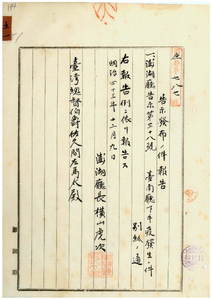 告示發布ノ件報告
一、澎湖廳告示第三十八號 臺南廳下牛疫發生ノ件
別紙ノ通
右報告例ニ依リ報告ス
明治四十三年十二月九日
澎湖廳長橫山虎次
臺灣總督伯爵佐久間左馬太殿